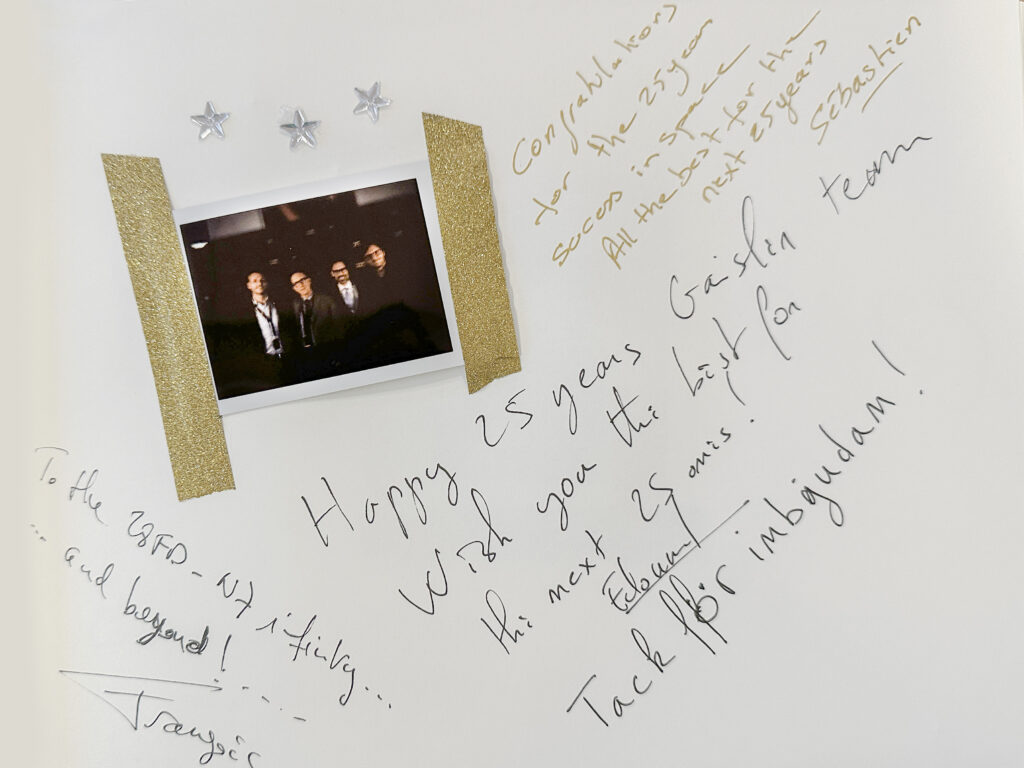 Congratulations
for the 25 year
success in space
All the best for the
next 25 years
Sébastien
Happy 25 years Gaislin team
Wish you thi bist for
thi next 25 onis.
Edouard
Tack för inbjudan!
To the 28FD-N7 ifinity...
... and beyond!
François